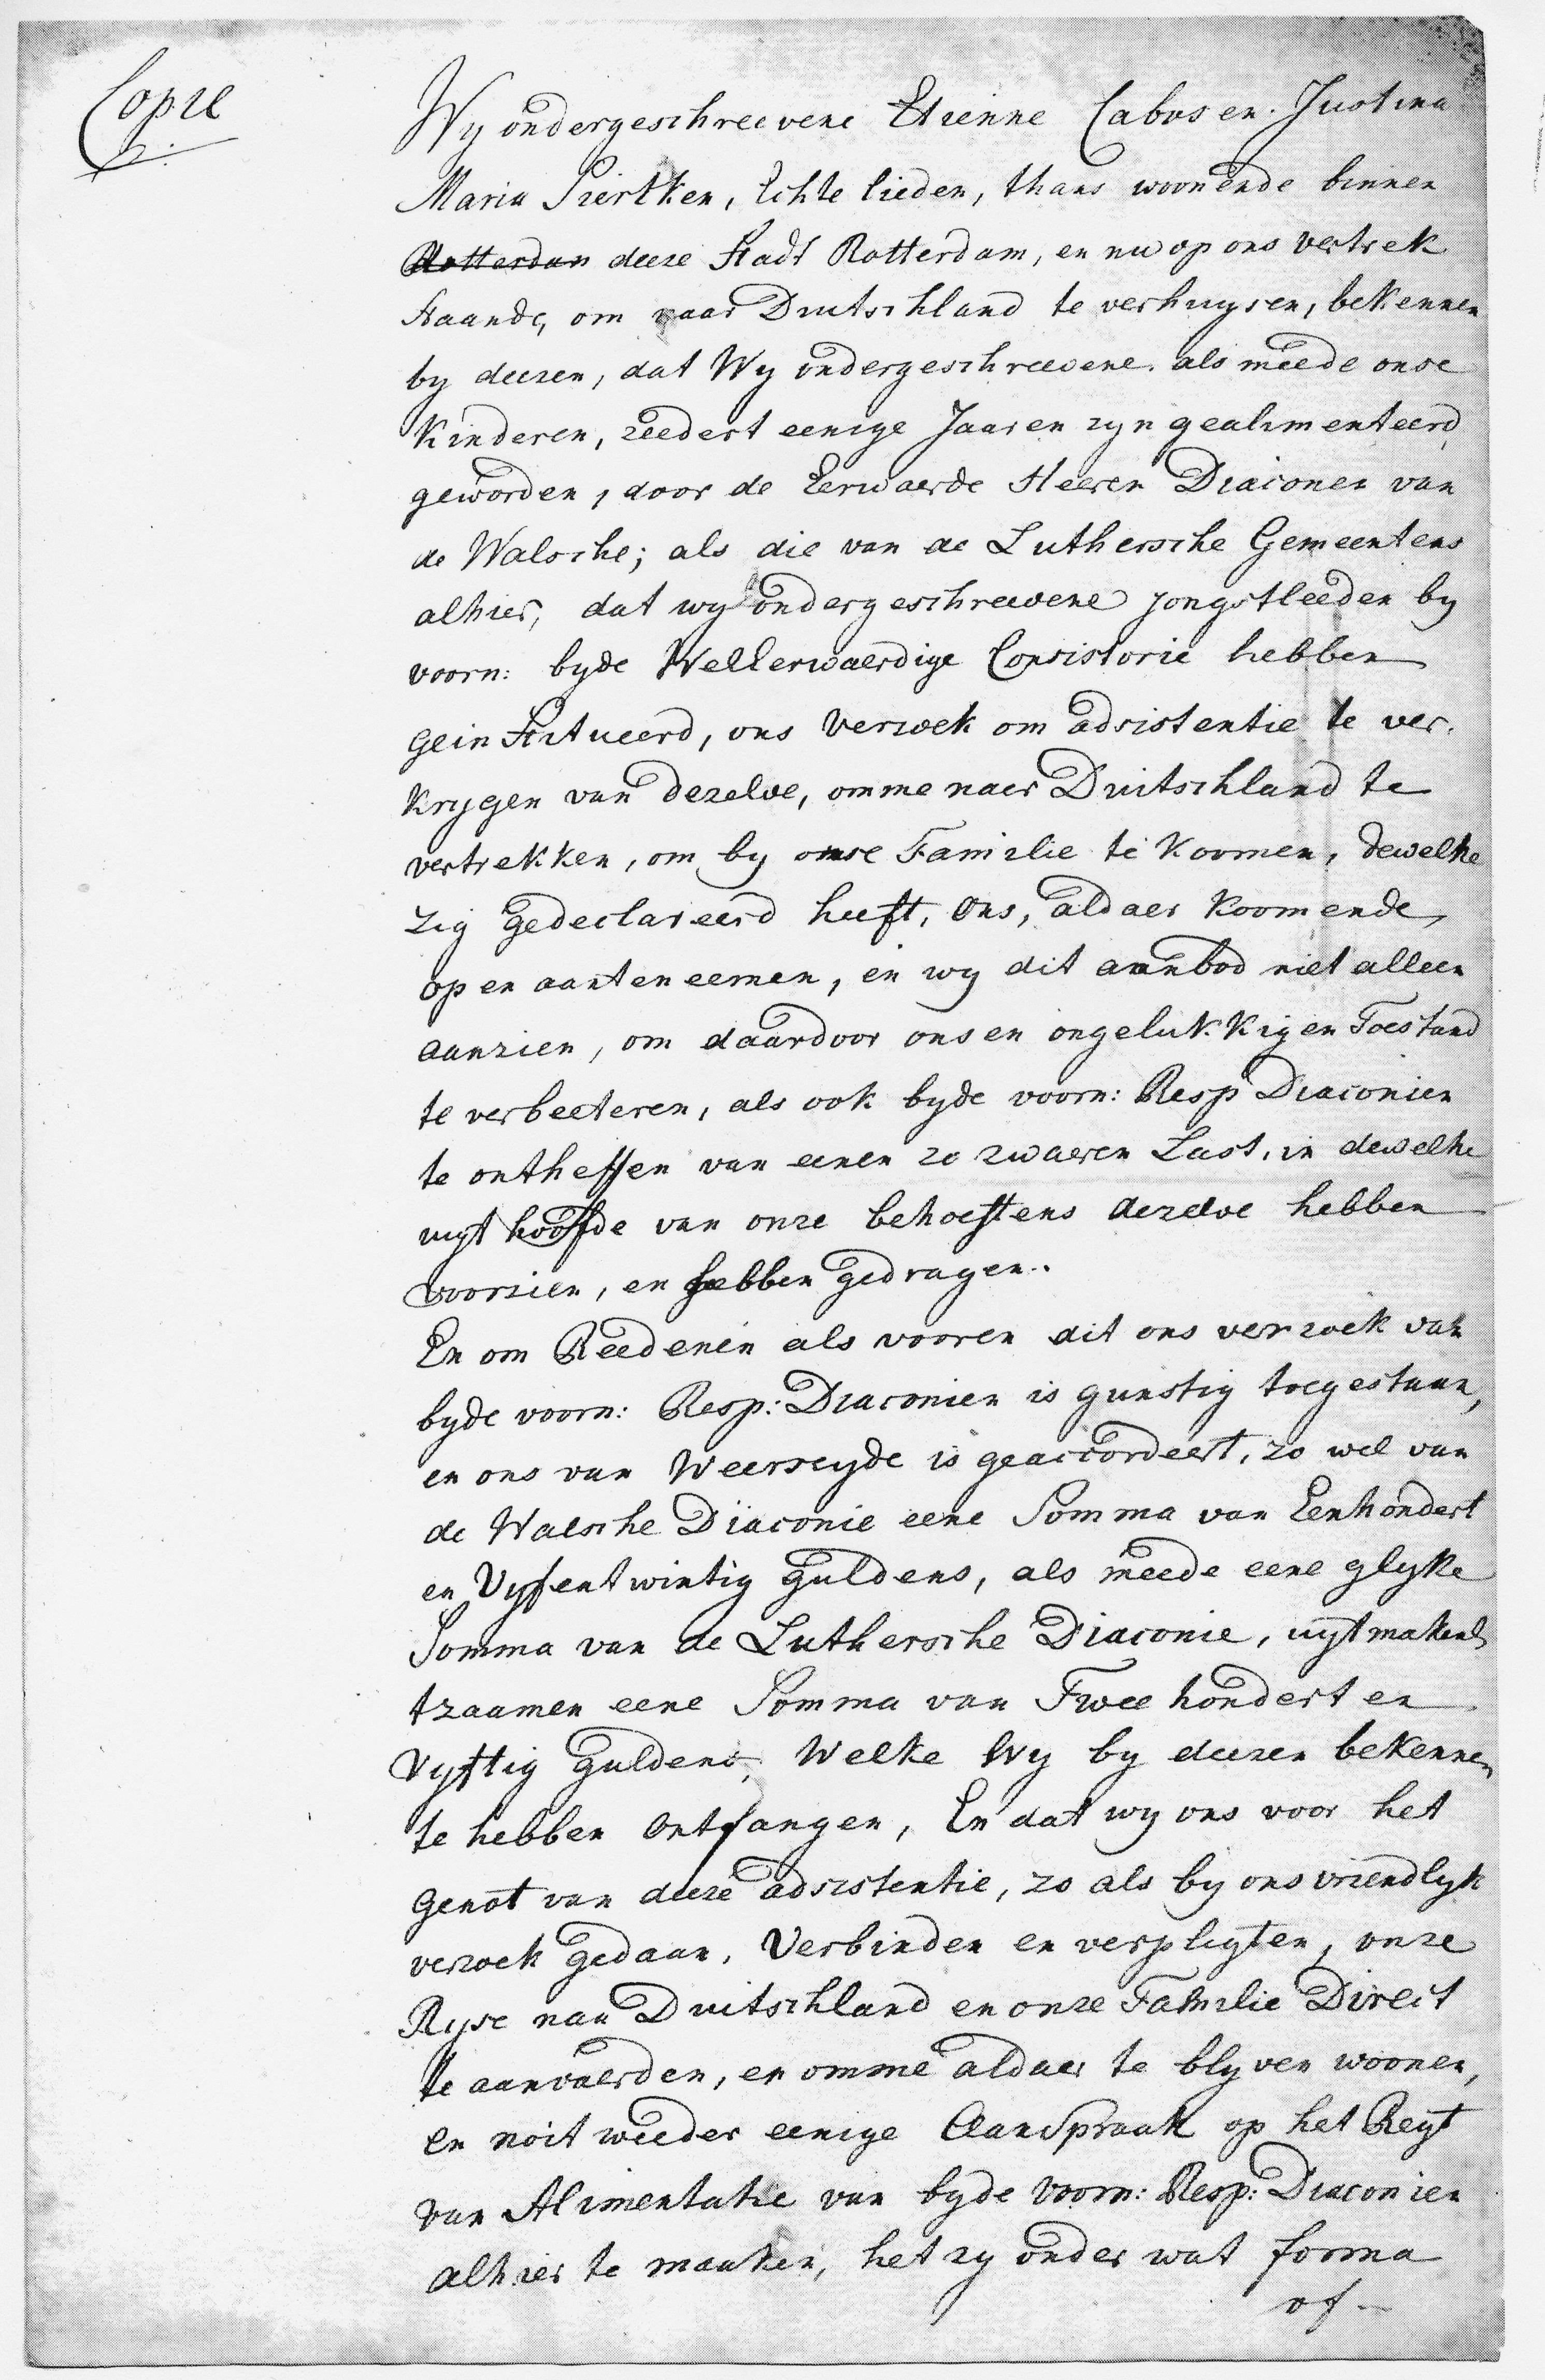 Copie
Wy ondergeschreevene Etienne Cabos en Justina
Maria Piertken, Echte lieden, thans woonende binnen
Rotterdam deeze Stadt Rotterdam, en nu op ons vertrek
staande, om naar Duutschland te verhuysen, bekennen
by deezen, dat Wy ondergeschreevene als meede onse
Kinderen, zeedert eenige Jaaren zyn gealimenteerd
geworden, door de Eerwaerde Heeren Diaconen van
de Walsche; als die van de Luthersche Gemeentens
alhier, dat wy ondergeschreevene jongstleeden by
voorn: byde WelEerwaerdige Consistorie hebben
geinstitueerd, ons Verzoek om adsistentie te ver-
krygen van dezelve, omme naer Duitschland te
vertrekken, om by onse Familie te koomen, dewelke
zig gedeclareerd heeft, Ons, aldaer koomende,
op en aanteneemen, en wy dit aanbod niet alleen
aanzien, om daardoor onsen ongelukkigen Toestand
te verbeeteren, als ook byde voorn: Resp Diaconien
te ontheffen van eenen zo zwaeren Last, in dewelke
uyt hoofde van onze behoeftens dezelve hebben
voorzien, en hebben gedragen.
En om Reedenen als vooren dit ons verzoek van
byde voorn: Resp: Diaconien is gunstig toegestaan,
en ons van Weerseyde is geaccordeert, zo wel van
de Walsche Diaconie eene Somma van Eenhondert
en Vyfentwintig guldens, als meede eene glyke
Somma van de Luthersche Diaconie, uytmakend
tzaamen eene Somma van Twee hondert en
Vyftig Guldens, Welke Wy by deezen bekennen
te hebben Ontfangen, En dat wy ons voor het
genot van deeze adsistentie, zo als by ons vriendlyk
verzoek gedaan, Verbinden en verpligten, onze
Ryse naa Duitschland en onze Familie Direct
te aanvaerden, en omme aldaer te blyven woonen,
en noit weeder eenige Aanspraak op het Regt
van Alimentatie van byde voorn: Resp: Diaconien
alhier te maaken, het zy onder wat forma
of